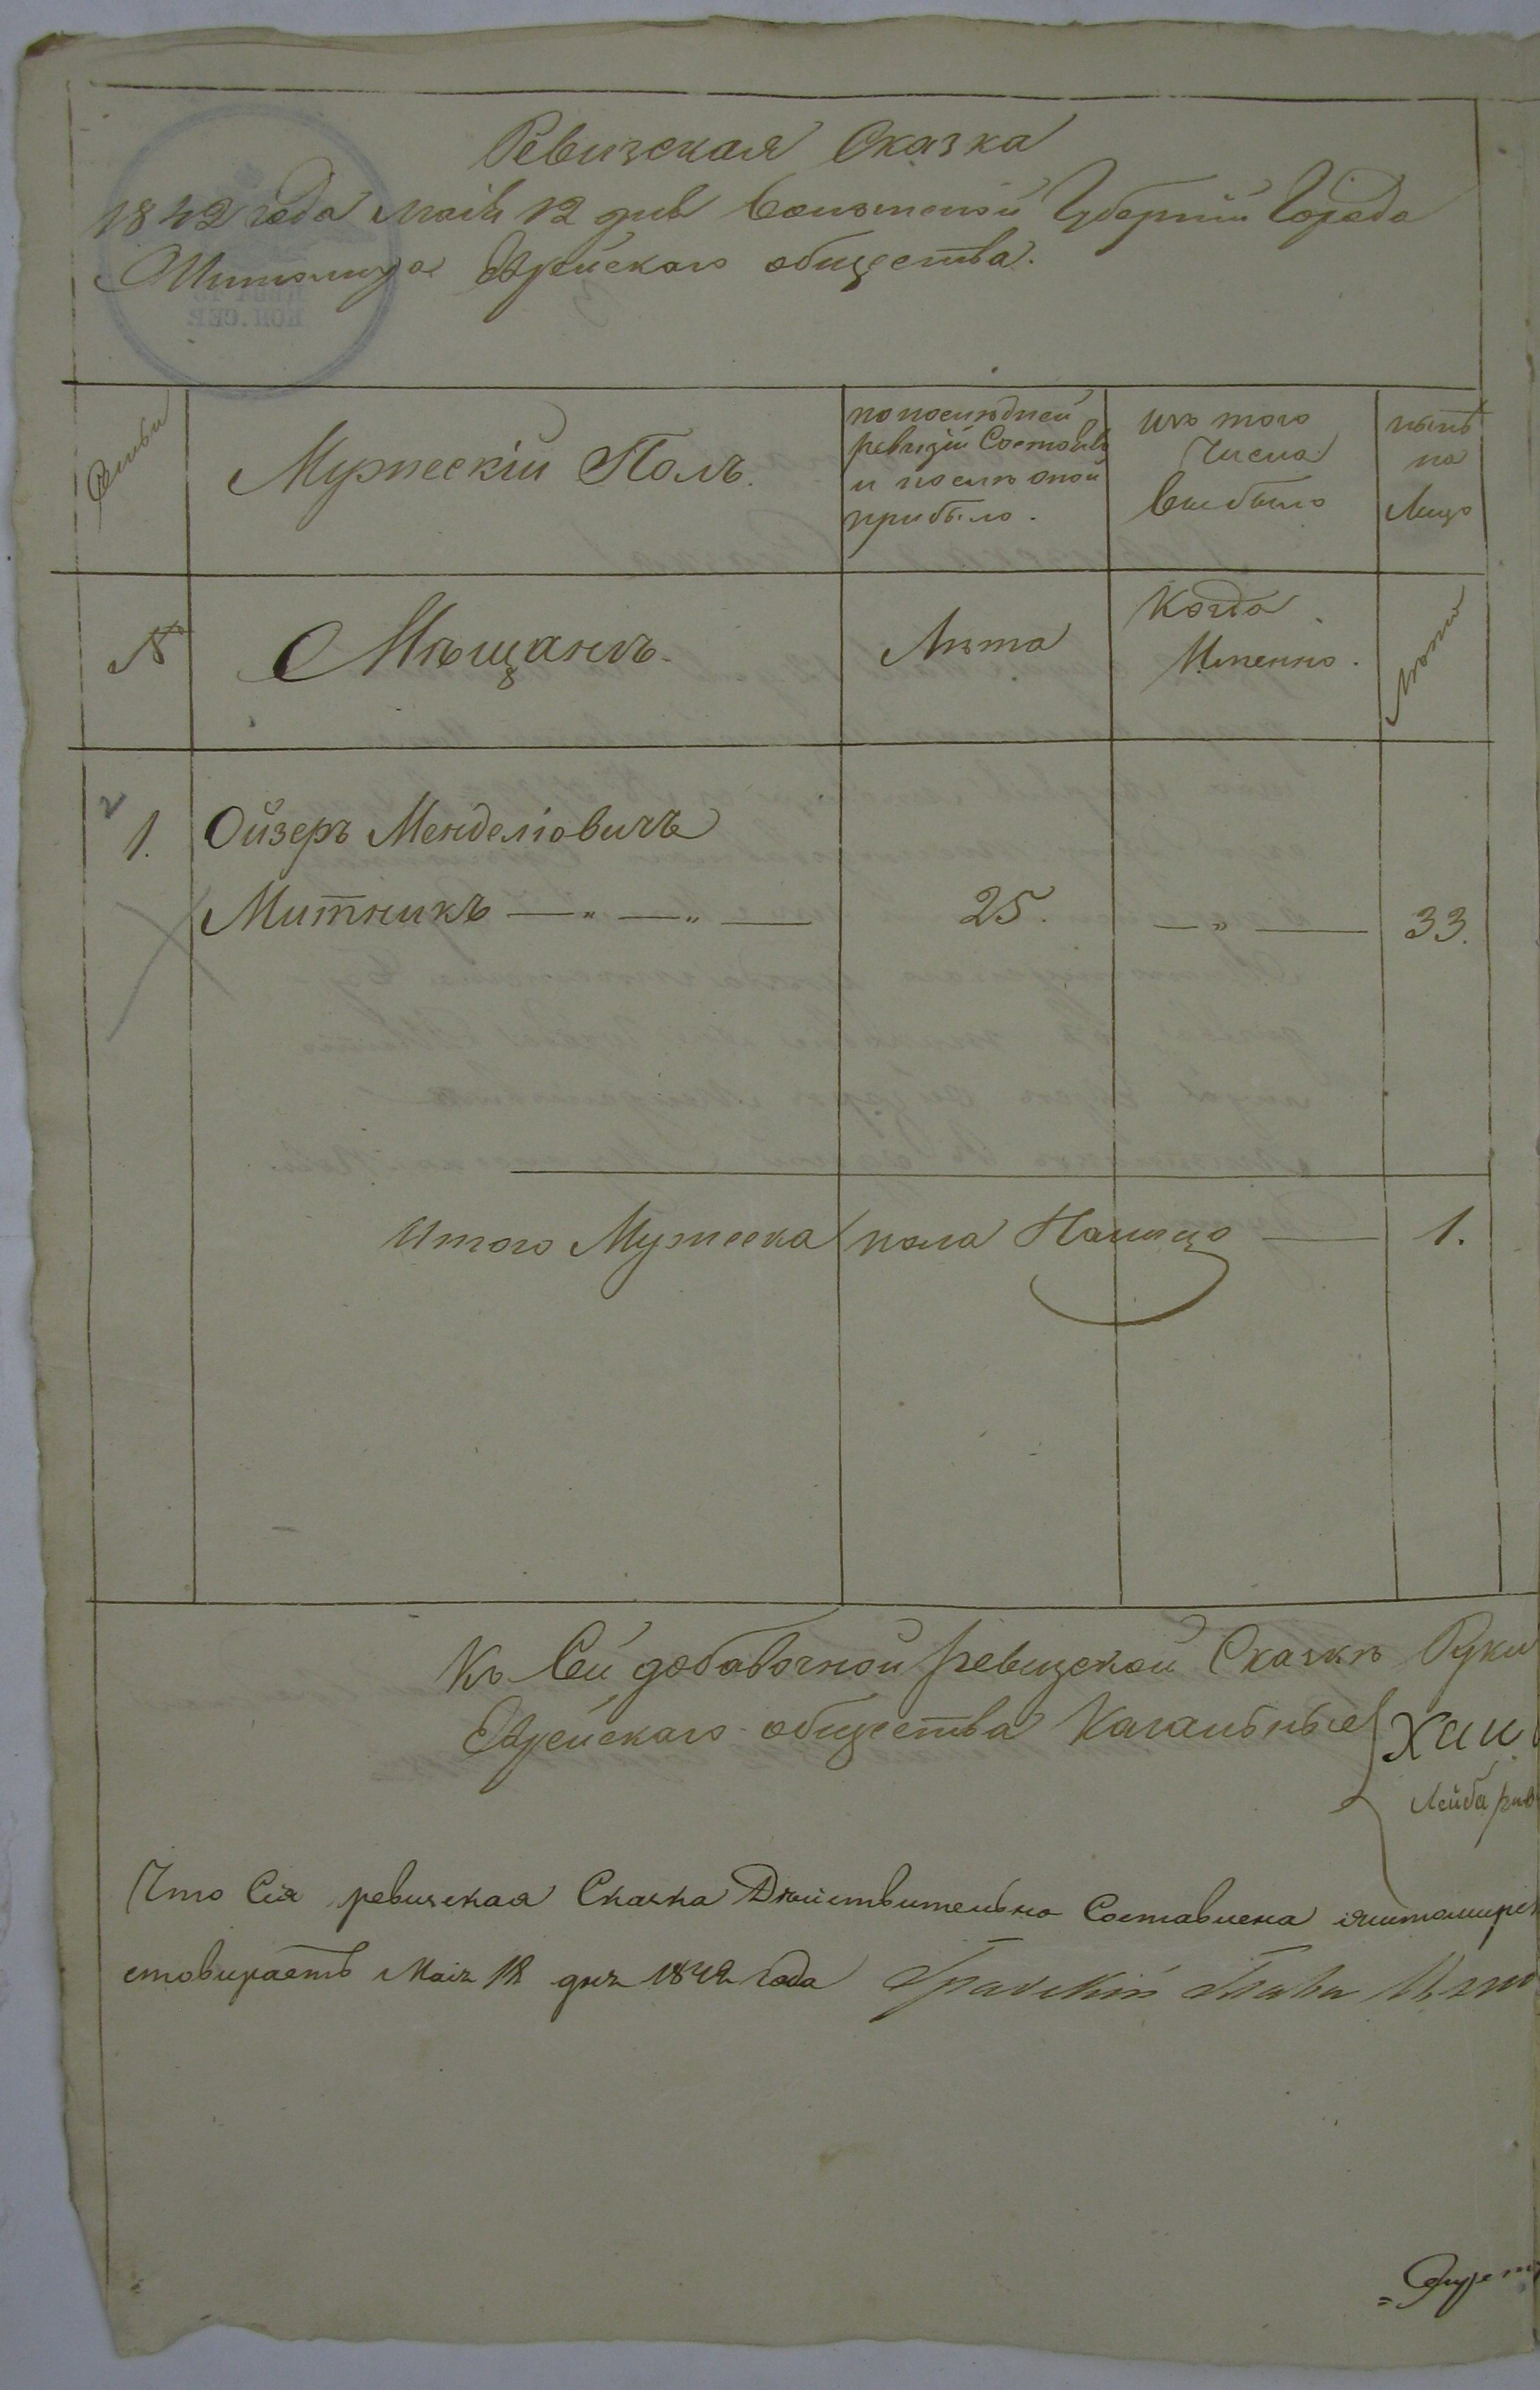 Ревизская Сказка
1842 года Маія 12 дня Волынской Губерніи Города
Житомира Еврейскаго общества.
Семьи
Мужескій Полъ.
по последней
ревизіи Состояло
и после оной
прибыло.
изъ того
Числа
выбыло
ныне
на
Лицо
№
Мѣщанъ.
Лѣта
Когда
Именно.
Лѣта
1.
Ойзеръ Менделіовичъ
Митникъ — „ — „ —
25.
— „ —
33.
Итого Мужеска пола Налицо — 1.
Къ Сей добавочной ревизской Сказкѣ Руки
Еврейскаго общества Кагальные
Хаи
Лейба
Что Сія ревизская Сказка Дѣйствительно Составлена
Маія 12 дня 1842 года